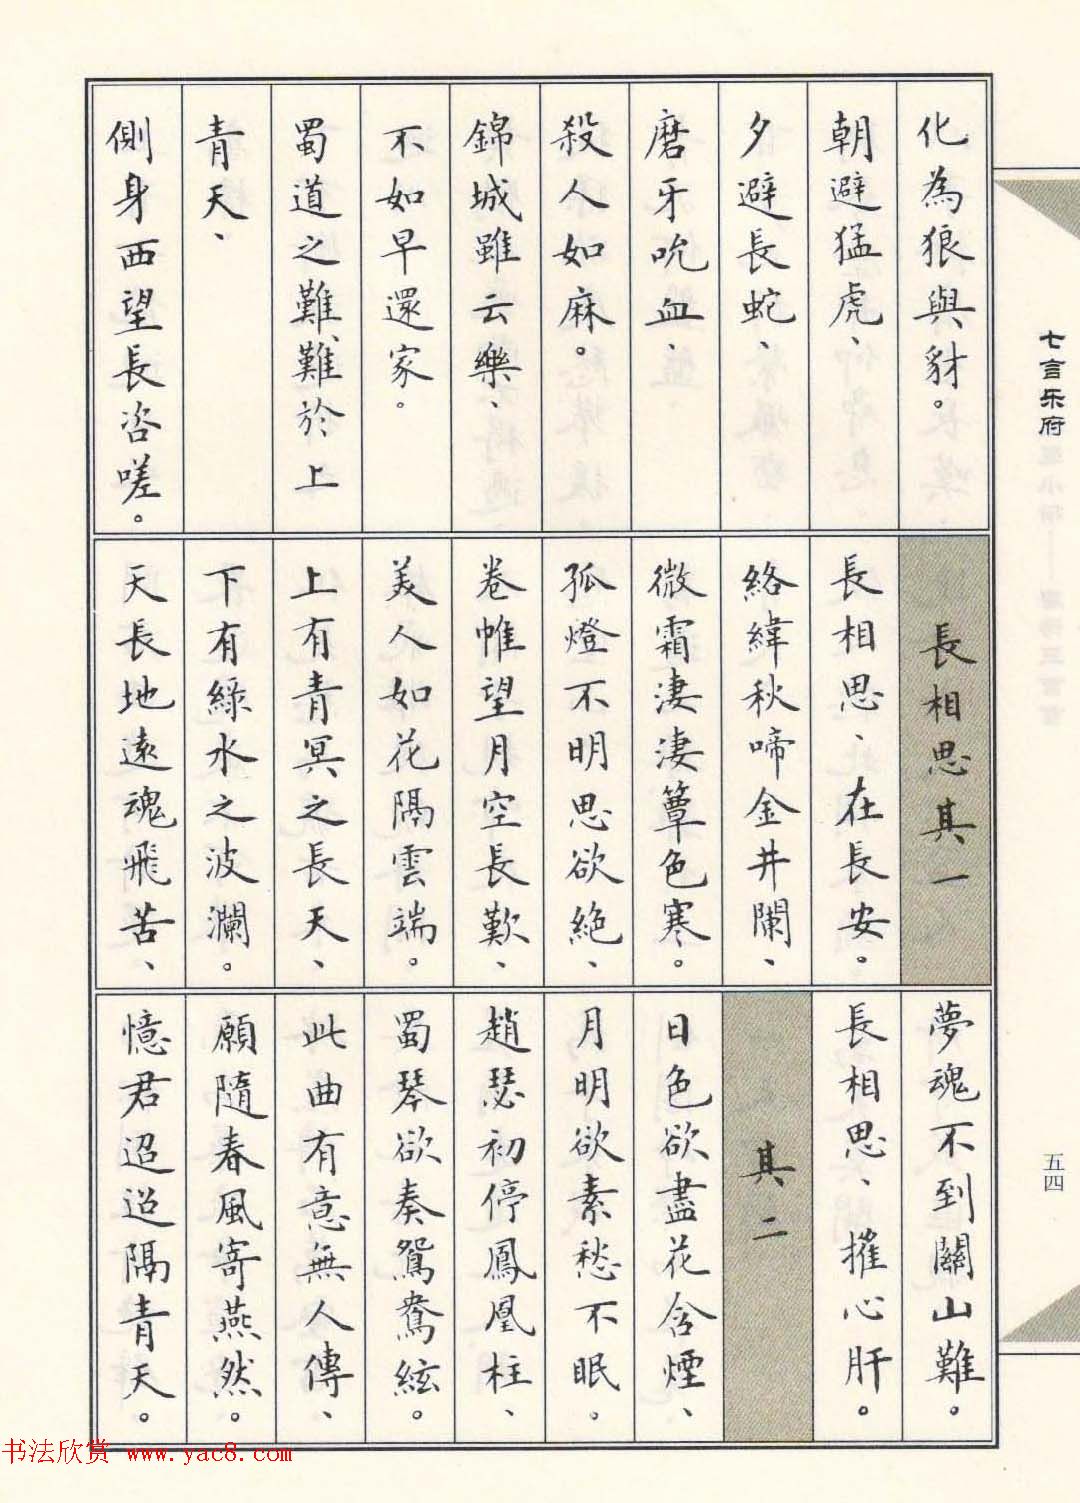 化為狼與豺。
朝避猛虎、
夕避長蛇、
磨牙吮血、
殺人如麻。
錦城雖云樂、
不如早還家。
蜀道之難難於上
青天、
側身西望長咨嗟。
長相思其一
長相思、在長安。
絡緯秋啼金井闌、
微霜淒淒簟色寒。
孤燈不明思欲絕、
卷帷望月空長歎、
美人如花隔雲端。
上有青冥之長天、
下有綠水之波瀾。
天長地遠魂飛苦、
夢魂不到關山難。
長相思、摧心肝。
其二
日色欲盡花含煙、
月明欲素愁不眠。
趙瑟初停鳳凰柱、
蜀琴欲奏鴛鴦絃。
此曲有意無人傳、
願隨春風寄燕然。
憶君迢迢隔青天。
七言乐府
五四
书法欣赏 www.yac8.com